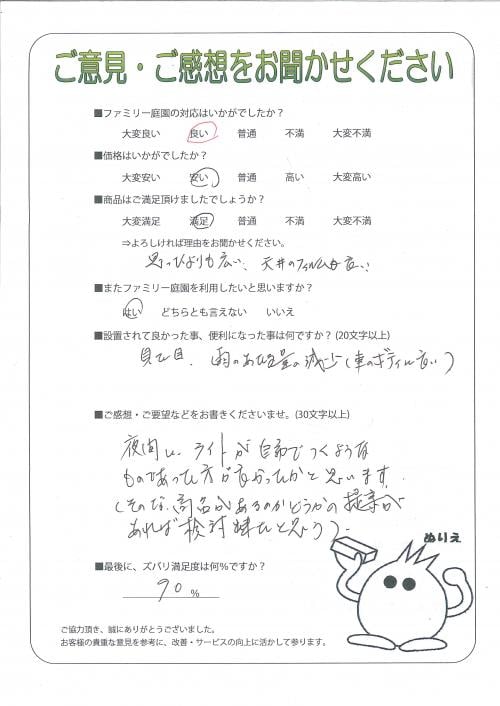 ご意見・ご感想をお聞かせください
■ファミリー庭園の対応はいかがでしたか？
大変良い 良い 普通 不満 大変不満
■価格はいかがでしたか？
大変安い 安い 普通 高い 大変高い
■商品はご満足頂けましたでしょうか？
大変満足 満足 普通 不満 大変不満
⇒よろしければ理由をお聞かせください。
思ったよりも広い、天井のフィルムが良い
■またファミリー庭園を利用したいと思いますか？
はい どちらとも言えない いいえ
■設置されて良かった事、便利になった事は何ですか？(20文字以上)
見た目、雨のあたる量の減少(車のボディに良い)
■ご感想・ご要望などをお書きくださいませ。(30文字以上)
夜間に、ライトが自動でつくような
ものであった方が良かったかと思います
(そのな商品があるのかどうかの提案が
あれば検討したと思う)。
ぬりえ
■最後に、ズバリ満足度は何％ですか？
90 %
ご協力頂き、誠にありがとうございました。
お客様の貴重な意見を参考に、改善・サービスの向上に活かして参ります。